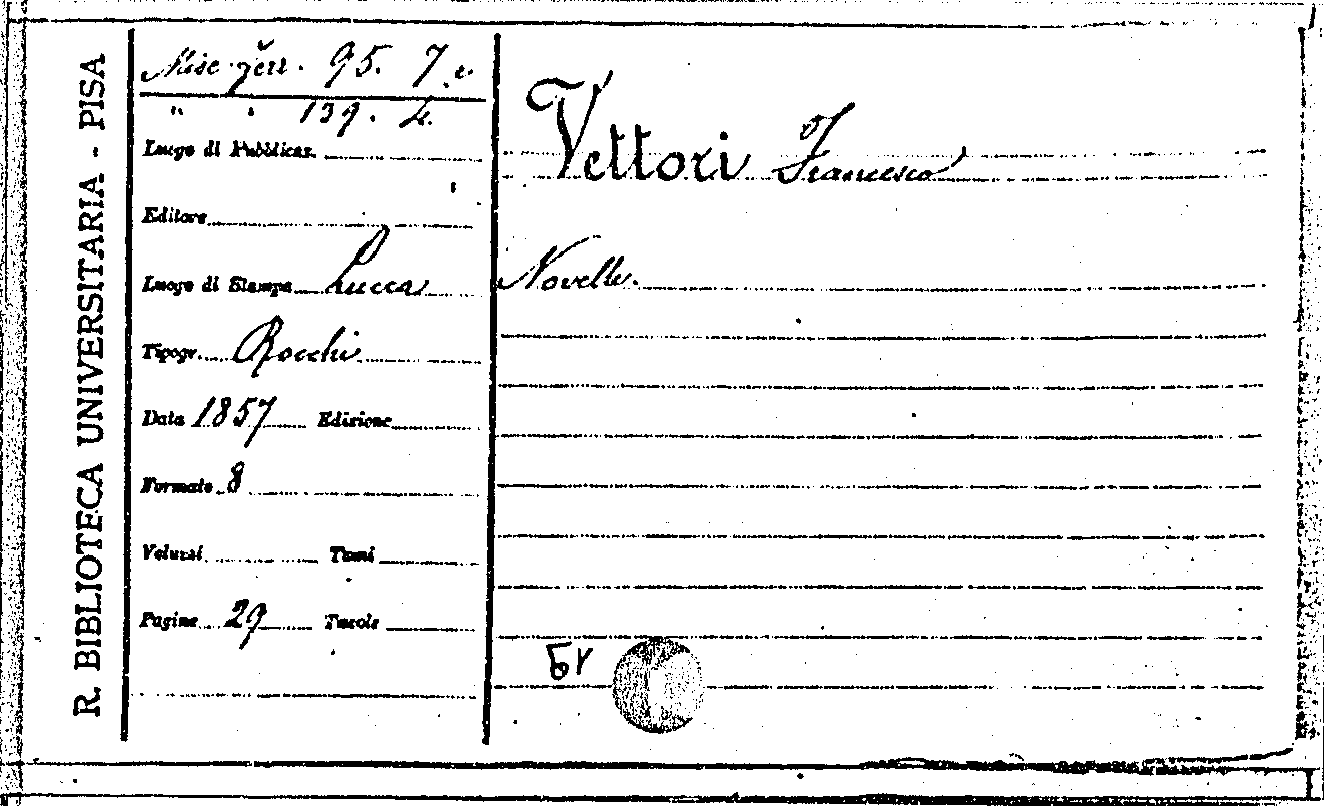 R. BIBLIOTECA UNIVERSITARIA - PISA
Misc. 95. 7
" " 139. 4.
Luogo di Pubblicaz.
Editore
Luogo di Stampa Lucca
Tipogr. Rocchi
Data 1857 Edizione
Formato 8
Volumi Tomi
Pagine 29 Tavole
Vettori Francesco
Novelle.